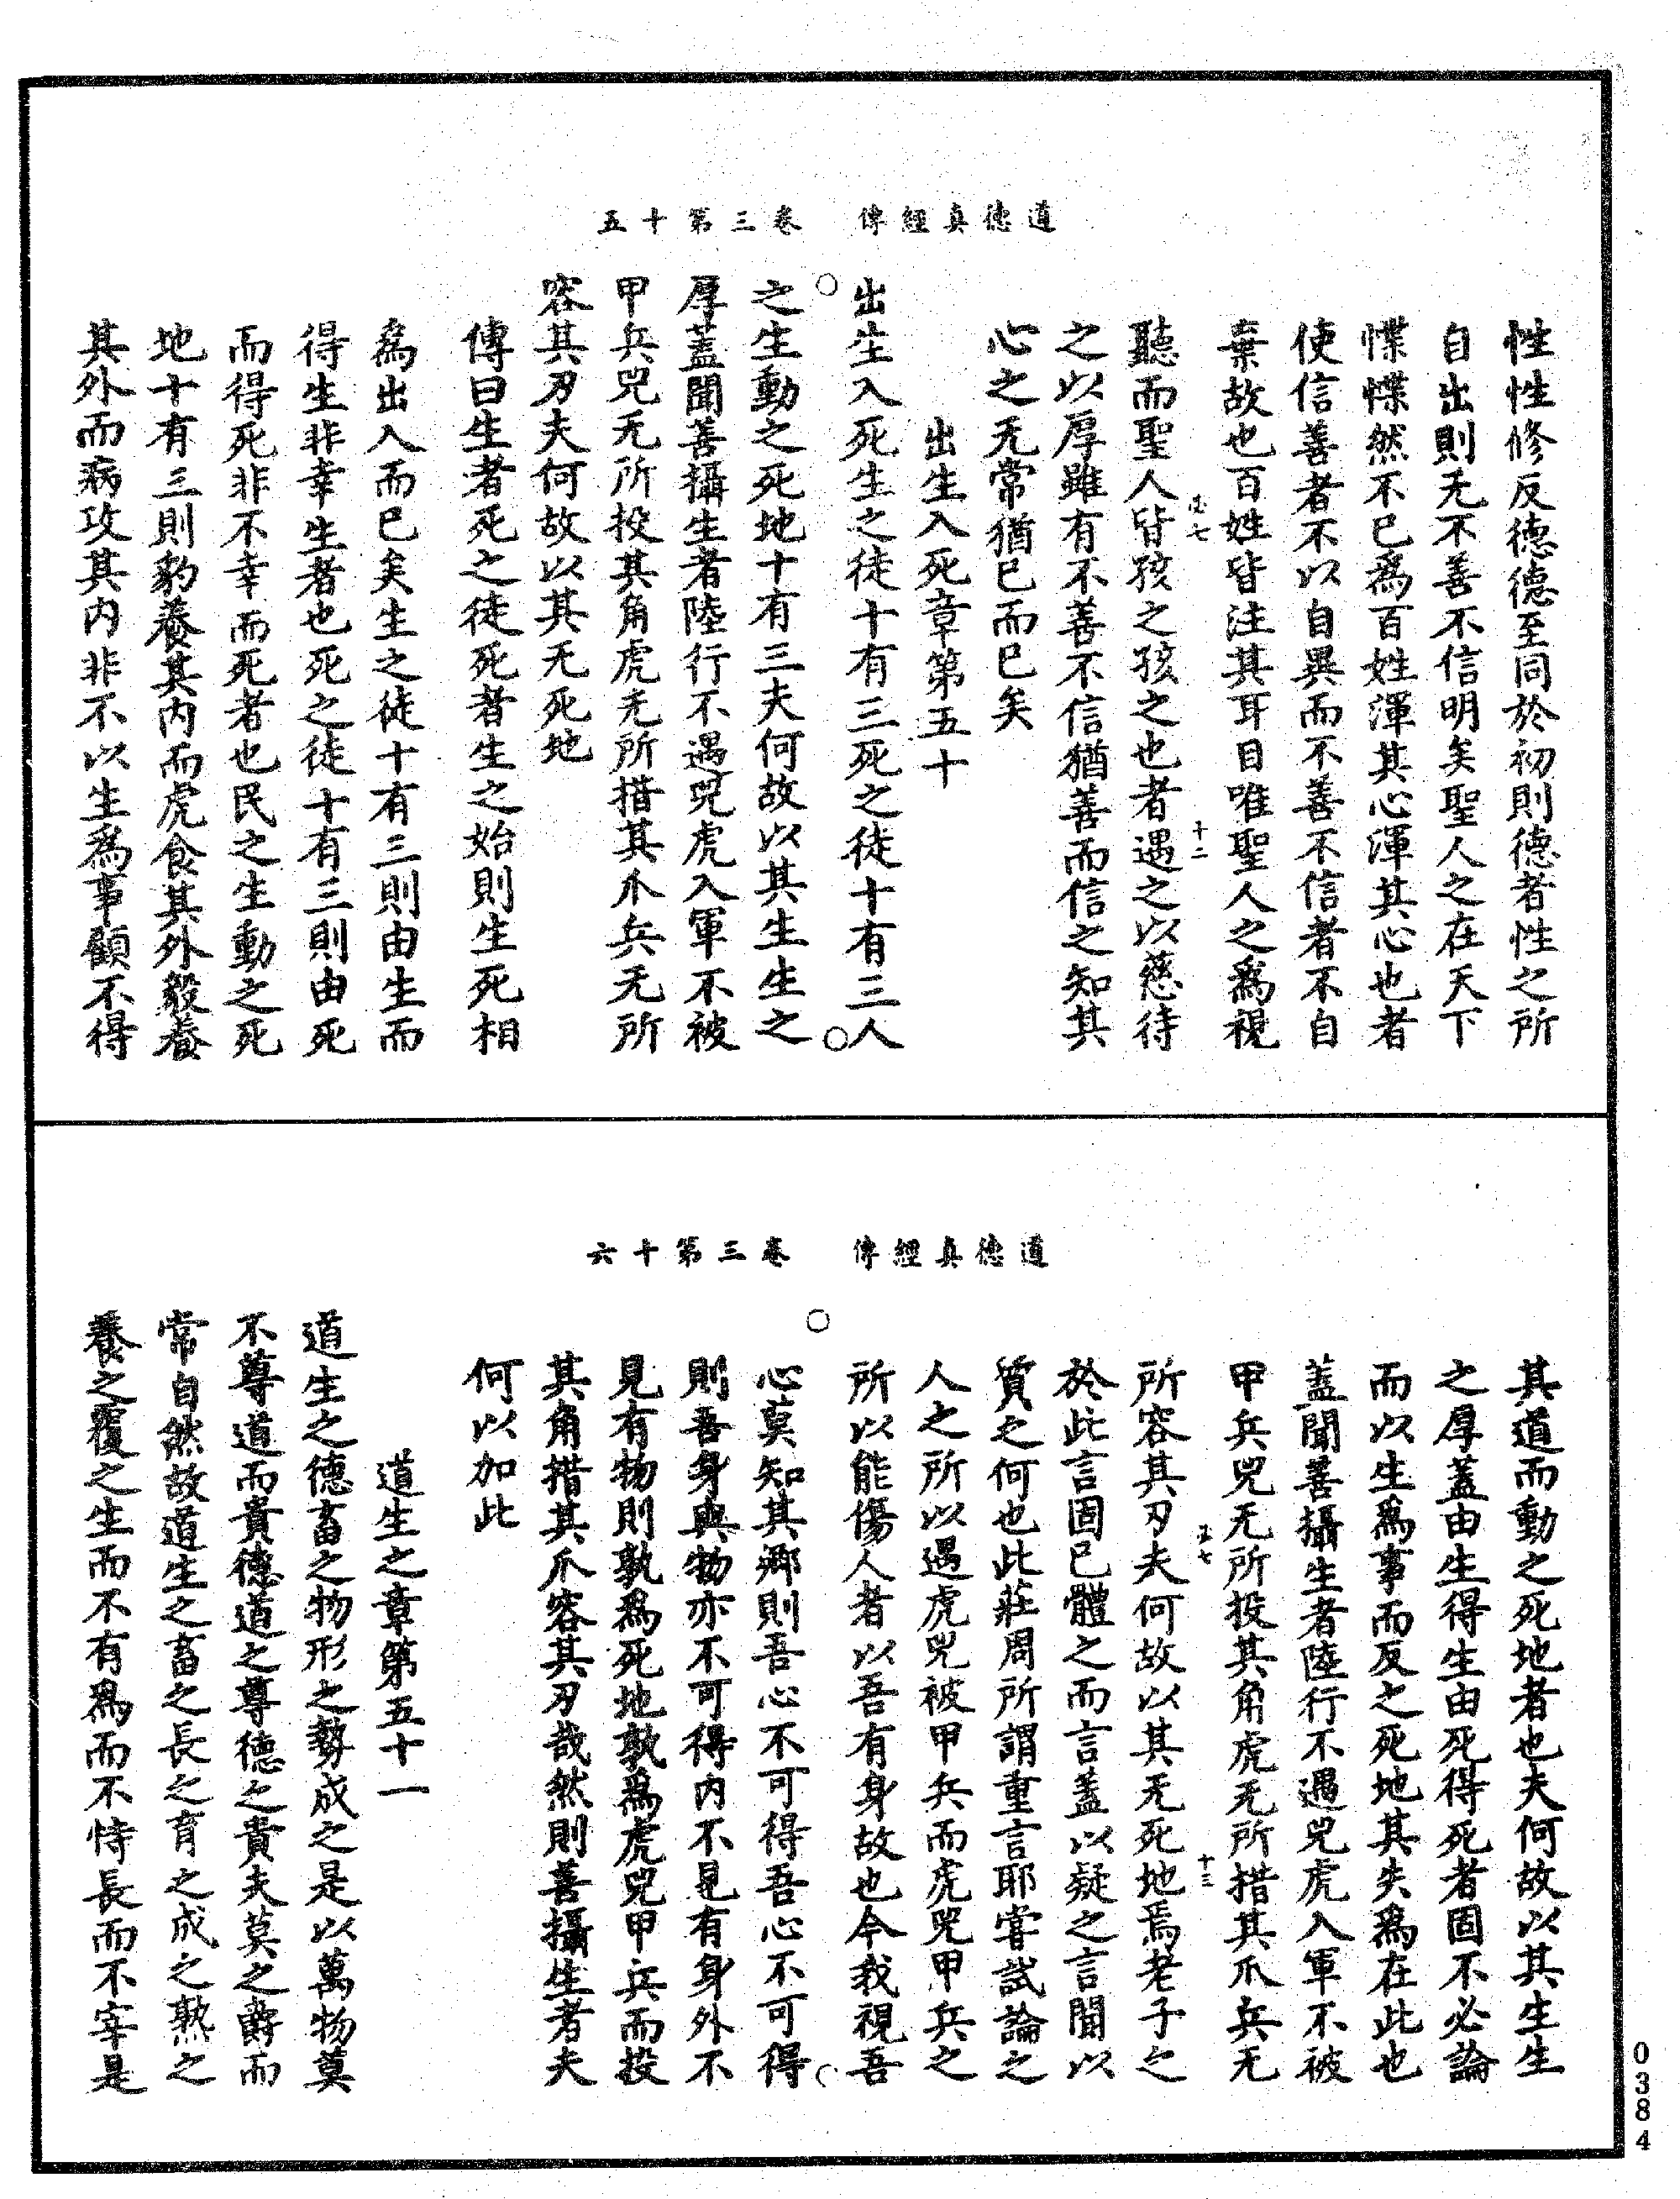 道德真經傳　卷三第十五
性性修反德德至同於初則德者性之所
自出則无不善不信明矣聖人之在天下
惵惵然不已為百姓渾其心渾其心也者
使信善者不以自異而不善不信者不自
棄故也百姓皆注其耳目唯聖人之為視
聽而聖人皆孩之孩之也者遇之以慈待
之以厚雖有不善不信猶善而信之知其
心之无常猶已而已矣
出生入死章第五十
出生入死生之徒十有三死之徒十有三人
之生動之死地十有三夫何故以其生生之
厚蓋聞善攝生者陸行不遇兕虎入軍不被
甲兵兕无所投其角虎无所措其爪兵无所
容其刃夫何故以其无死地
傳曰生者死之徒死者生之始則生死相
為出入而已矣生之徒十有三則由生而
得生非幸生者也死之徒十有三則由死
而得死非不幸而死者也民之生動之死
地十有三則豹養其內而虎食其外毅養
其外而病攻其內非不以生為事顧不得
道德真經傳　卷三第十六
其道而動之死地者也夫何故以其生生
之厚蓋由生得生由死得死者固不必論
而以生為事而反之死地其失為在此也
蓋聞善攝生者陸行不遇兕虎入軍不被
甲兵兕无所投其角虎无所措其爪兵无
所容其刃夫何故以其无死地焉老子之
於此言固已體之而言言蓋以疑之言聞以
質之何也此莊周所謂重言耶嘗試論之
人之所以遇虎兕被甲兵而虎兕甲兵之
所以能傷人者以吾有身故也今我視吾
心莫知其鄉則吾心不可得吾心不可得
則吾身與物亦不可得內不見有身外不
見有物則孰為死地孰為虎兕甲兵而投
其角措其爪容其刃哉然則善攝生者夫
何以加此
道生之章第五十一
道生之德畜之物形之勢成之是以萬物莫
不尊道而貴德道之尊德之貴夫莫之爵而
常自然故道生之畜之長之育之成之熟之
養之覆之生而不有為而不恃長而不宰是
0384